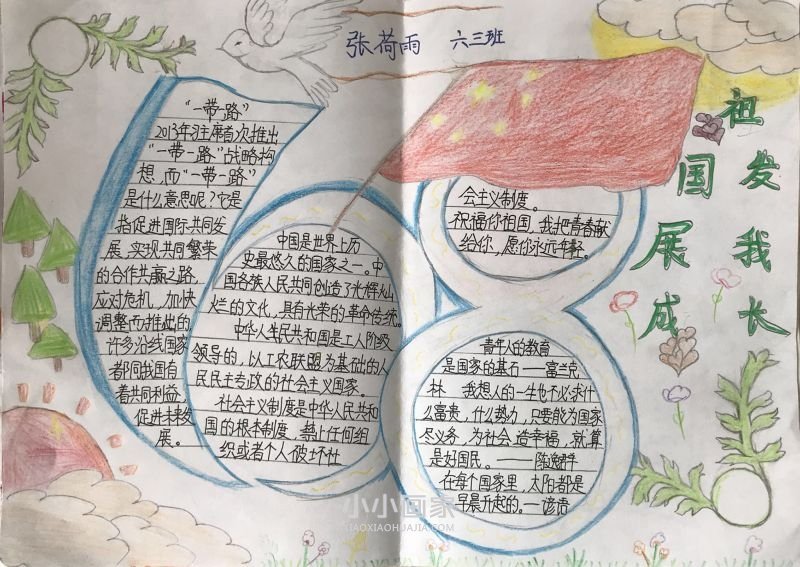 张荷雨 六三班
祖国发展我成长
“一带一路”
2013年习主席首次推出
“一带一路”战略构
想,而“一带一路”
是什么意思呢?它是
指促进国际共同发
展,实现共同繁荣
的合作共赢之路,
应对危机,加快
调整而推出的,
许多沿线国家
都同我国有
着共同利益,
促进未来发
展。
中国是世界上历
史最悠久的国家之一。中
国各族人民共同创造了光辉从
烂的文化,具有光荣的革命传统。
中华人民共和国是工人阶级
领导的,以工农联盟为基础的人
民民主专政的社会主义国家。
社会主义制度是中华人民共和
国的根本制度,禁止任何组
织或者个人破坏社
会主义制度。
祝福你祖国,我把青春献
给你,愿你永远年轻。
青年人的教育
是国家的基石——富兰克
林 我想人的一生也不必求什
么富贵,什么势力,只要能为国家
尽义务,为社会造幸福,就算
是好国民。——陈逸群
在每个国家里,太阳都是
早晨升起的。——谚语
小小画家
XIAOXIAOHUAJIA.COM